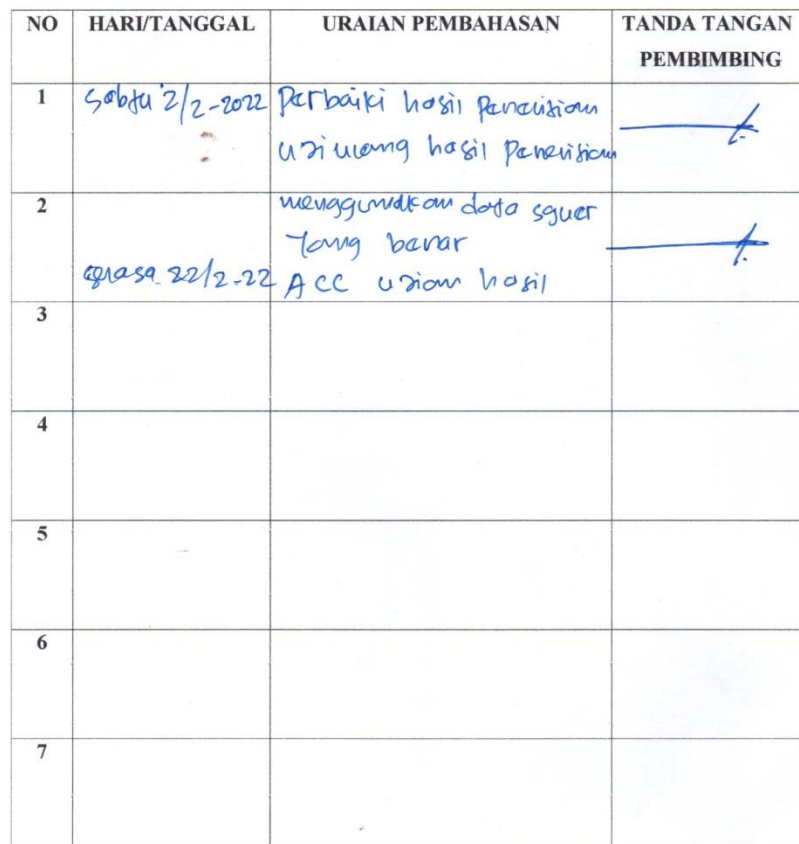 NO HARI/TANGGAL URAIAN PEMBAHASAN TANDA TANGAN
PEMBIMBING
1 Sabtu 2/2-2022 Perbaiki hasil Penelitian
hasil Penelitian
2 menggunakan data
Yang benar
22/2-22 ACC uraian hasil
3
4
5
6
7